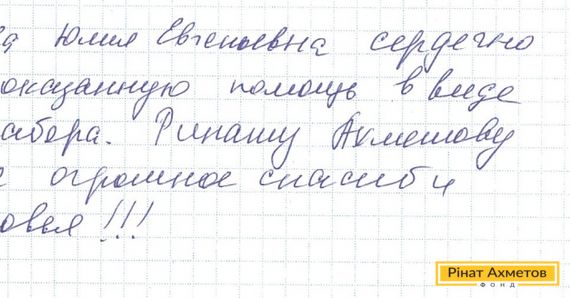 ва Юлия Евгеньевна сердечно
оказанную помощь в виде
абора. Ринату Ахметову
е огромное спасиб и
овья!!!
Рінат Ахметов
ФОНД